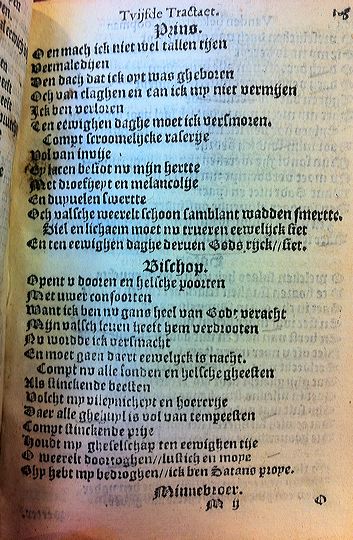 Tvijfde Tractaet.
Prins.
En mach ick niet wel tallen tijen
Vermaledijen
Den dach dat ick oyt was gheboren
Och van claghen en can ick my niet vermijen
Ick ben verloren
Ten eewighen daghe moet ick versmoren.
Compt scroomelijcke raserije
Vol van invije
En laten besiot nu mijn hertte
Met droefheyt en melancolije
En duyvelen swertte
Och valsche weerelt schoon samblant wadden smertte.
Siel en lichaem moet nu trueren eewelijck siet
En ten eewighen daghe derven Gods rijck//siet.
Bischop.
Opent v dooren en helsche poorten
Met uwer consoorten
Want ick ben nv gans heel van Godt veracht
Mijn valsch leuen heeft hem verdrooten
Nv wordde ick versmacht
En moet gaen daert eewelijck is nacht.
Compt nv alle sonden en helsche gheesten
Als stinckende beesten
Volcht my vileynicheyt en hoererije
Daer alle ghecuyl is vol van tempeesten
Compt stinckende prije
Houdt my gheselschap ten eewighen tije
O weerelt doortoghen//lustich en moye
Ghy hebt my bedroghen//ick ben Satans proye.
Minnebroer.
M ij
O